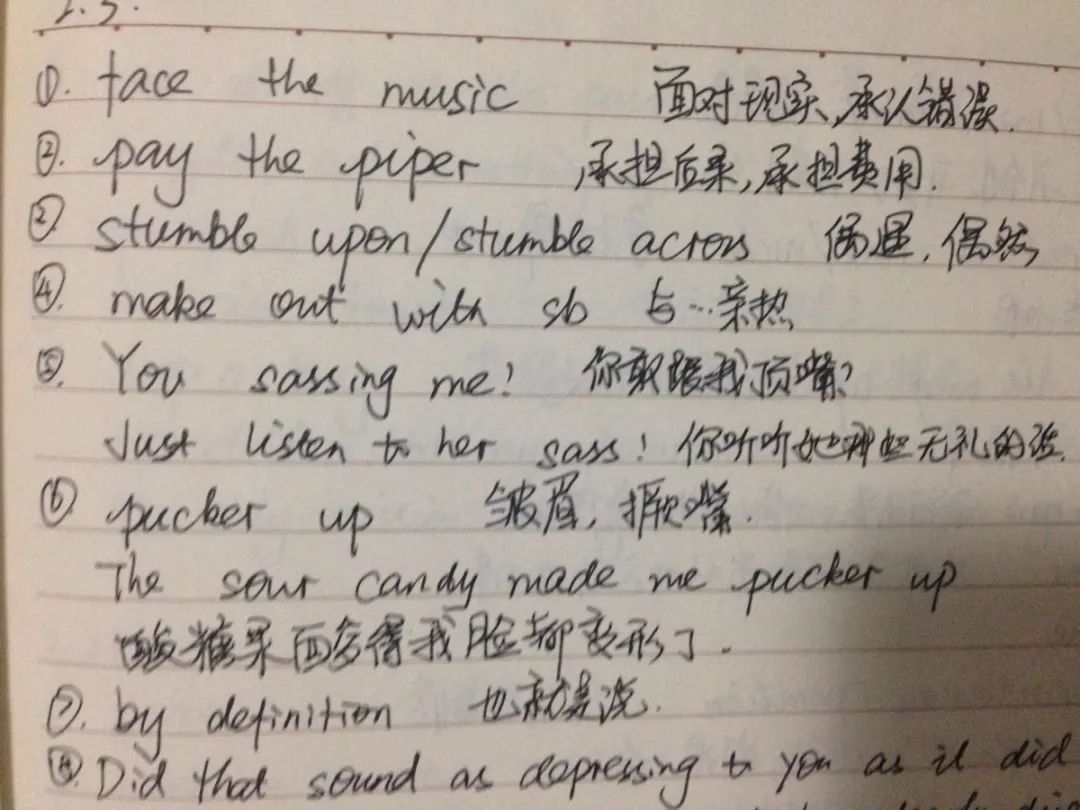 ①. face the music 面对现实,承认错误.
②. pay the piper 承担后果,承担费用.
② stumble upon/stumble across 偶遇,偶然
④. make out with sb 与…亲热
⑤. You sassing me! 你敢跟我顶嘴?
Just listen to her sass! 你听听她那些无礼的话.
⑥ pucker up 皱眉,撅嘴.
The sour candy made me pucker up
酸糖果 得我脸都变形了.
⑦. by definition 也就是说.
⑧ Did that sound as depressing to you as it did